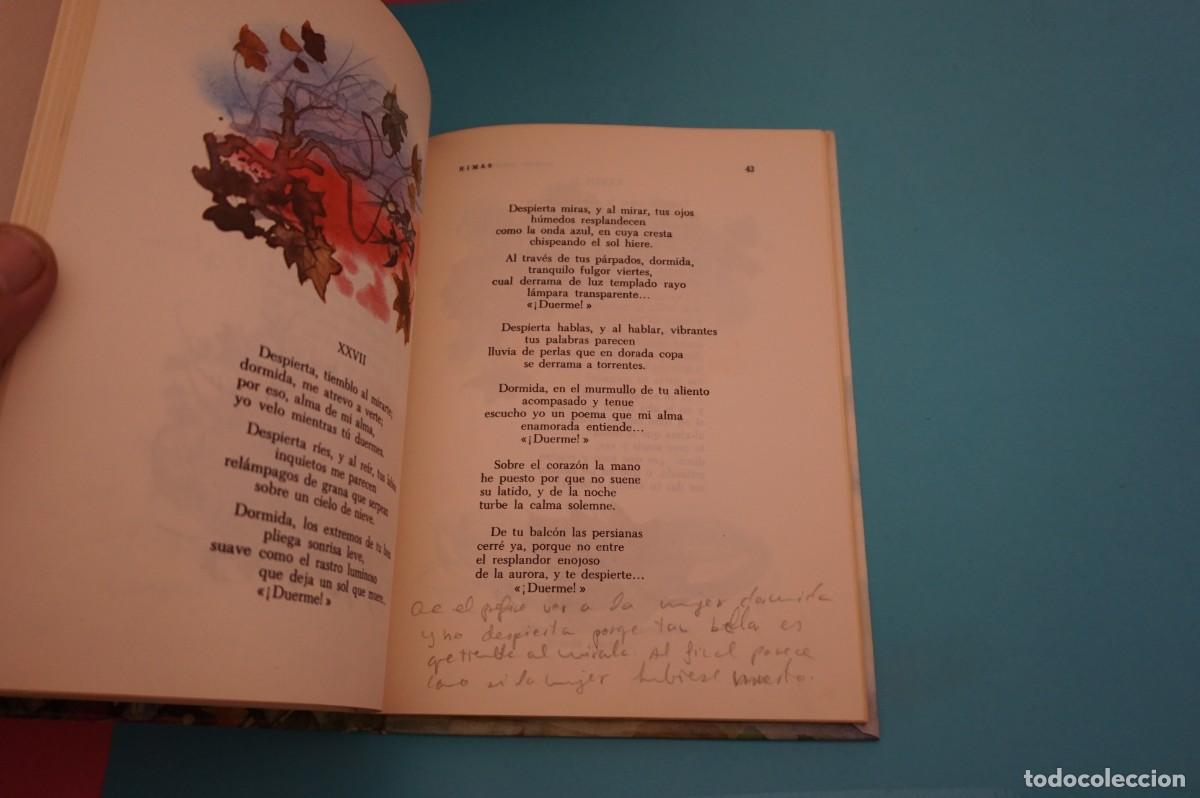 XXVII
Despierta, tiemblo al mirarte;
dormida, me atrevo a verte;
por eso, alma de mi alma,
yo velo mientras tú duermes.
Despierta ríes, y al reír, tus
inquietos me parecen
relámpagos de grana que serpean
sobre un cielo de nieve.
Dormida, los extremos de tu boca
pliega sonrisa leve,
suave como el rastro luminoso
que deja un sol que muere...
«¡Duerme!»
RIMAS
43
Despierta miras, y al mirar, tus ojos
húmedos resplandecen
como la onda azul, en cuya cresta
chispeando el sol hiere.
Al través de tus párpados, dormida,
tranquilo fulgor viertes,
cual derrama de luz templado rayo
lámpara transparente...
«¡Duerme!»
Despierta hablas, y al hablar, vibrantes
tus palabras parecen
lluvia de perlas que en dorada copa
se derrama a torrentes.
Dormida, en el murmullo de tu aliento
acompasado y tenue
escucho yo un poema que mi alma
enamorada entiende...
«¡Duerme!»
Sobre el corazón la mano
he puesto por que no suene
su latido, y de la noche
turbe la calma solemne.
De tu balcón las persianas
cerré ya, porque no entre
el resplandor enojoso
de la aurora, y te despierte...
«¡Duerme!»
el ver a la mujer dormida
y no despierta porqe tan bella es
qe tiembla al mirarla. Al final parece
como si la mujer hubiese muerto.
todocoleccion